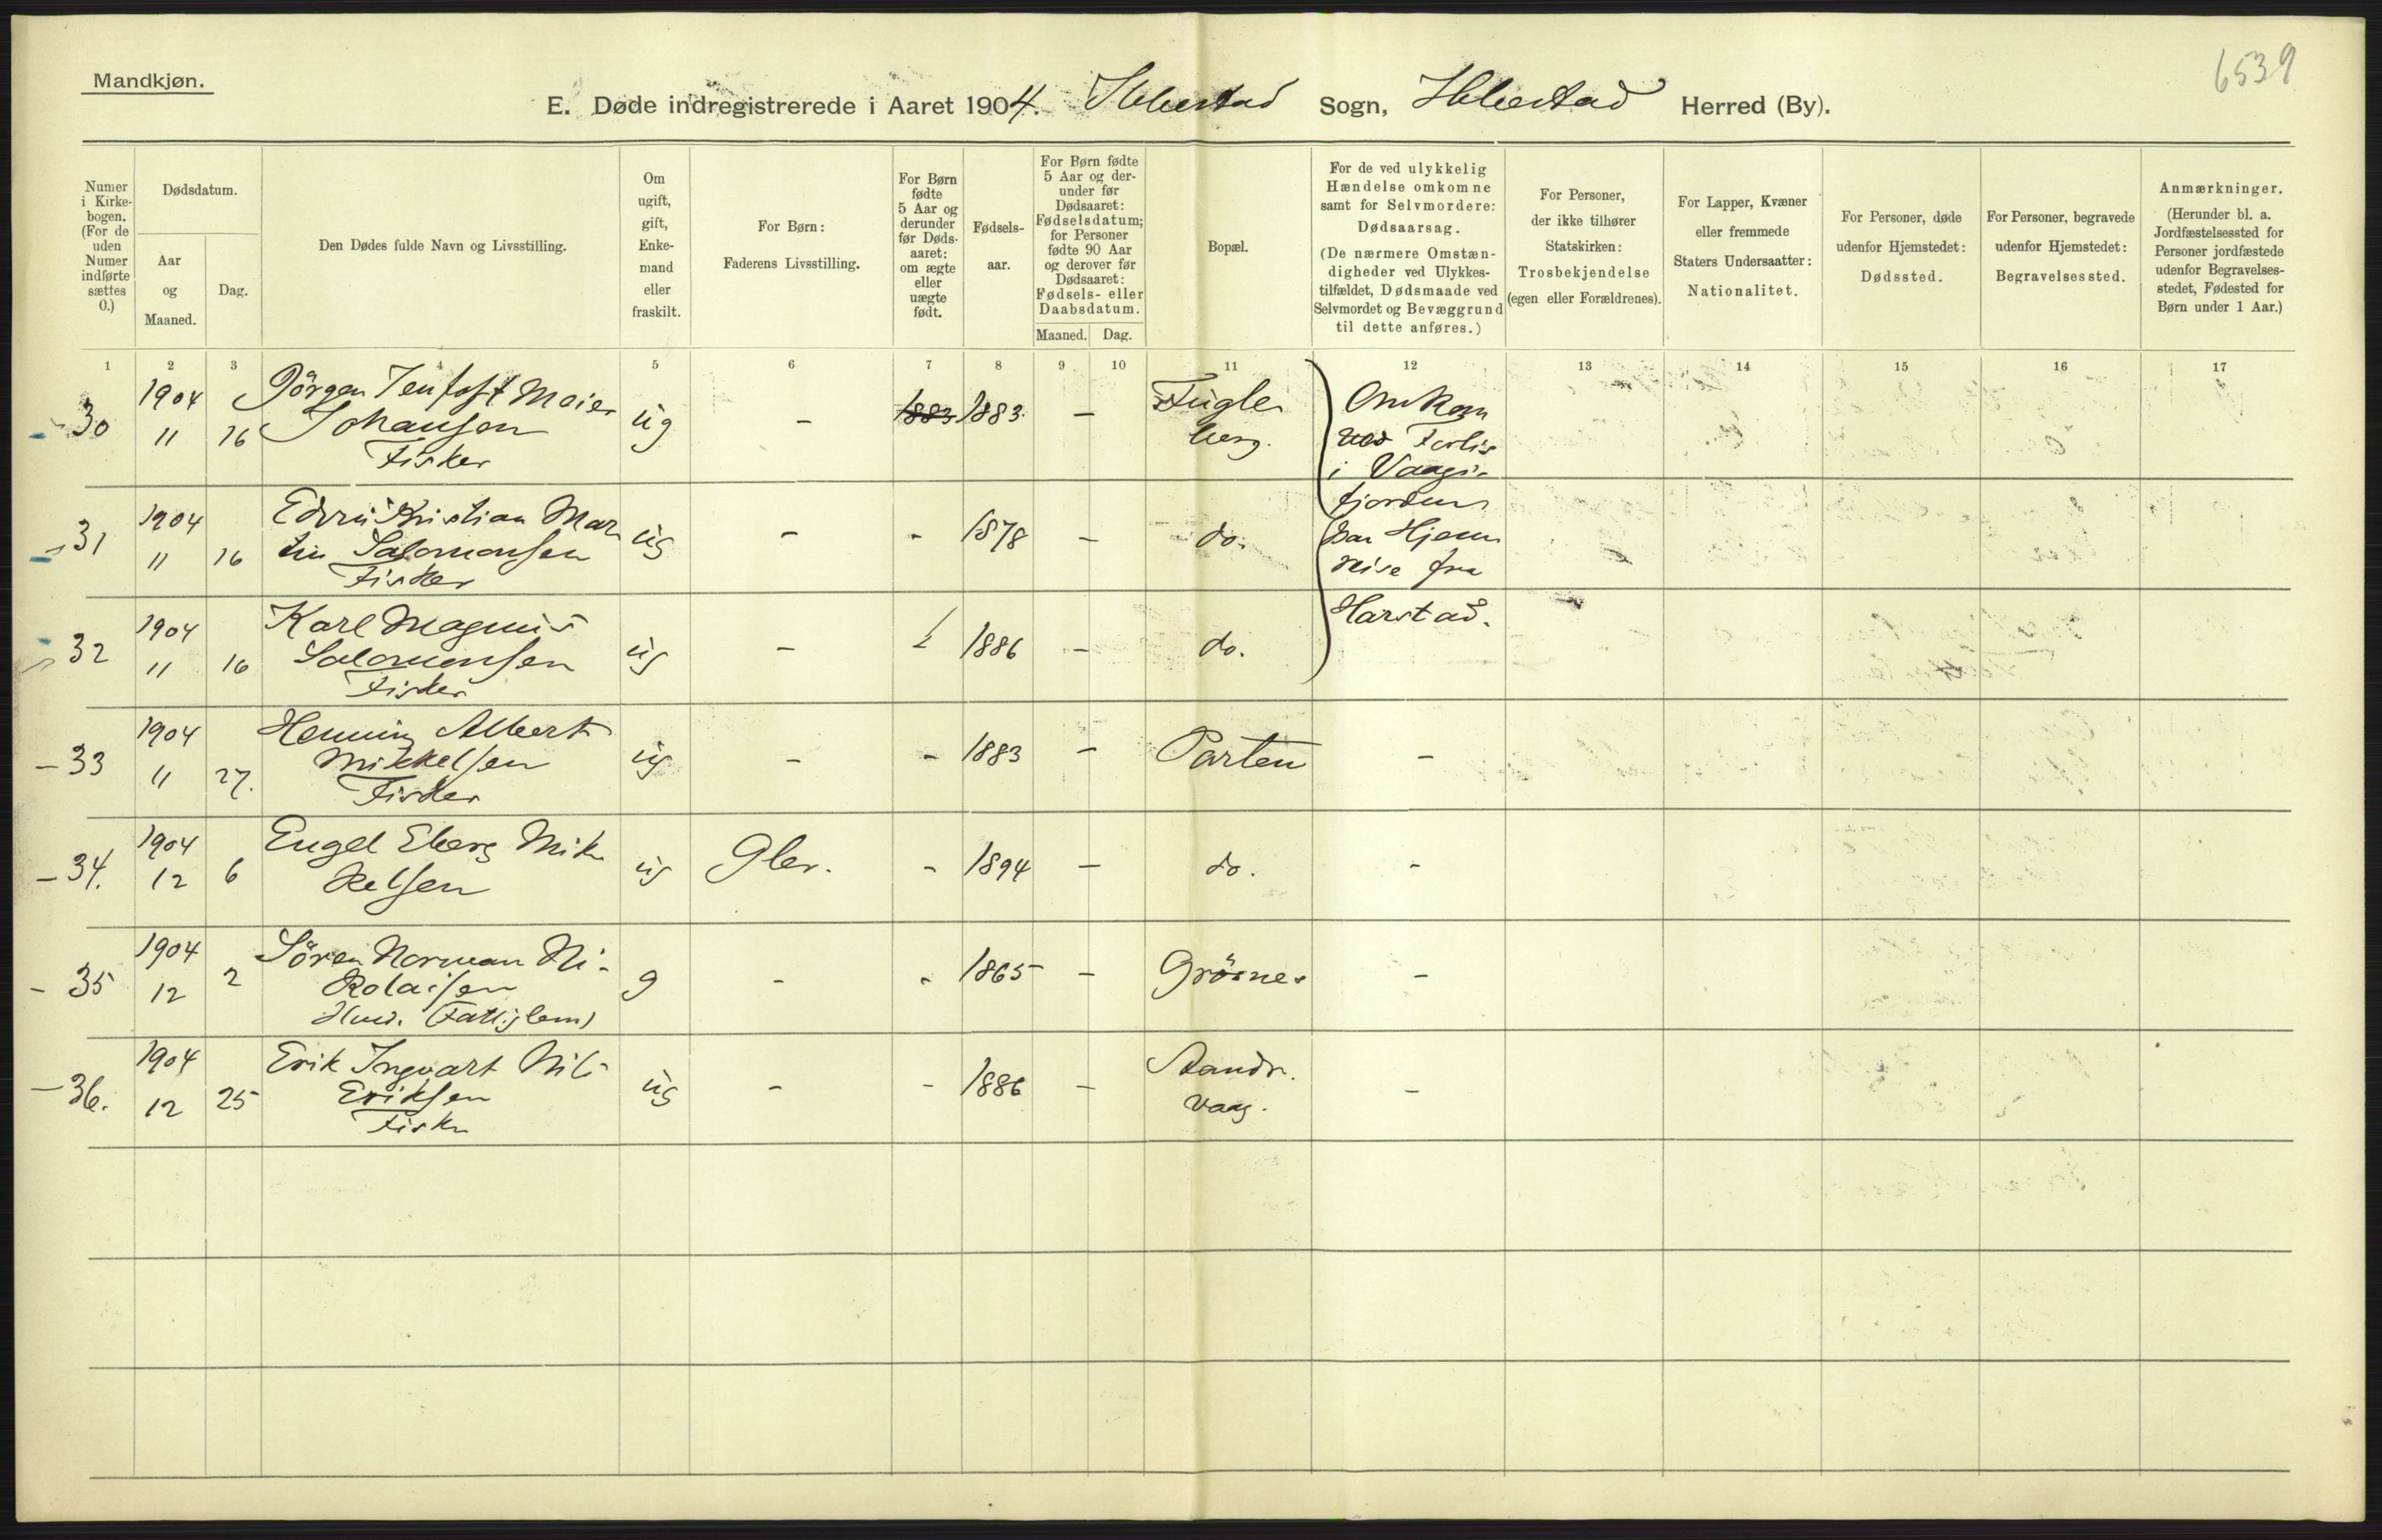 6539
Mandkjøn.
E. Døde indregistrerede i Aaret 1904. Ibbestad Sogn, Ibbestad Herred (By).
Numer i Kirkebogen. (For de uden Numer indførte sættes 0.)
Dødsdatum.
Aar og Maaned.
Dag.
Den Dødes fulde Navn og Livsstilling.
Om ugift, gift, Enkemand eller fraskilt.
For Børn: Faderens Livsstilling.
For Børn fødte 5 Aar og derunder før Dødsaaret: om ægte eller uægte født.
Fødselsaar.
For Børn fødte 5 Aar og derunder før Dødsaaret: Fødselsdatum; for Personer fødte 90 Aar og derover før Dødsaaret: Fødsels- eller Daabsdatum.
Maaned. Dag.
Bopæl.
For de ved ulykkelig Hændelse omkomne samt for Selvmordere: Dødsaarsag. (De nærmere Omstændigheder ved Ulykkestilfældet, Dødsmaade ved Selvmordet og Bevæggrund til dette anføres.)
For Personer, der ikke tilhører Statskirken: Trosbekjendelse (egen eller Forældrenes).
For Lapper, Kvæner eller fremmede Staters Undersaatter: Nationalitet.
For Personer, døde udenfor Hjemstedet: Dødssted.
For Personer, begravede udenfor Hjemstedet: Begravelsessted.
Anmærkninger. (Herunder bl. a. Jordfæstelsessted for Personer jordfæstede udenfor Begravelsesstedet, Fødested for Børn under 1 Aar.)
1 2 3 4 5 6 7 8 9 10 11 12 13 14 15 16 17
30 1904 11 16 Jörgen Tentoft Meier
Johansen
Fisker
ug - 1883 1883. - Fugleberg.
Omkom
ved Forlis
i Vaags-
fjorden
paa Hjem
reise fra
Harstad.
31 1904 11 16 Edvin Kristian Mar
tin Salomonsen
Fisker
ug - - 1878 - do.
32 1904 11 16 Karl Magnus
Salomonsen
Fisker
ug - 1886 - do.
33 1904 11 27. Henning Albert
Mikkelsen
Fisker
ug - - 1883 - Parten -
34. 1904 12 6 Engel Eberg Mik
kelsen
ug Gbr. - 1894 - do. -
35 1904 12 2 Sören Norman Ni-
kolaisen
(Fattiglem)
g - - 1865 - Grösnes -
36. 1904 12 25 Erik Ingvart Nils
Eriksen
Fisker
ug - - 1886 - Sandvaag. -